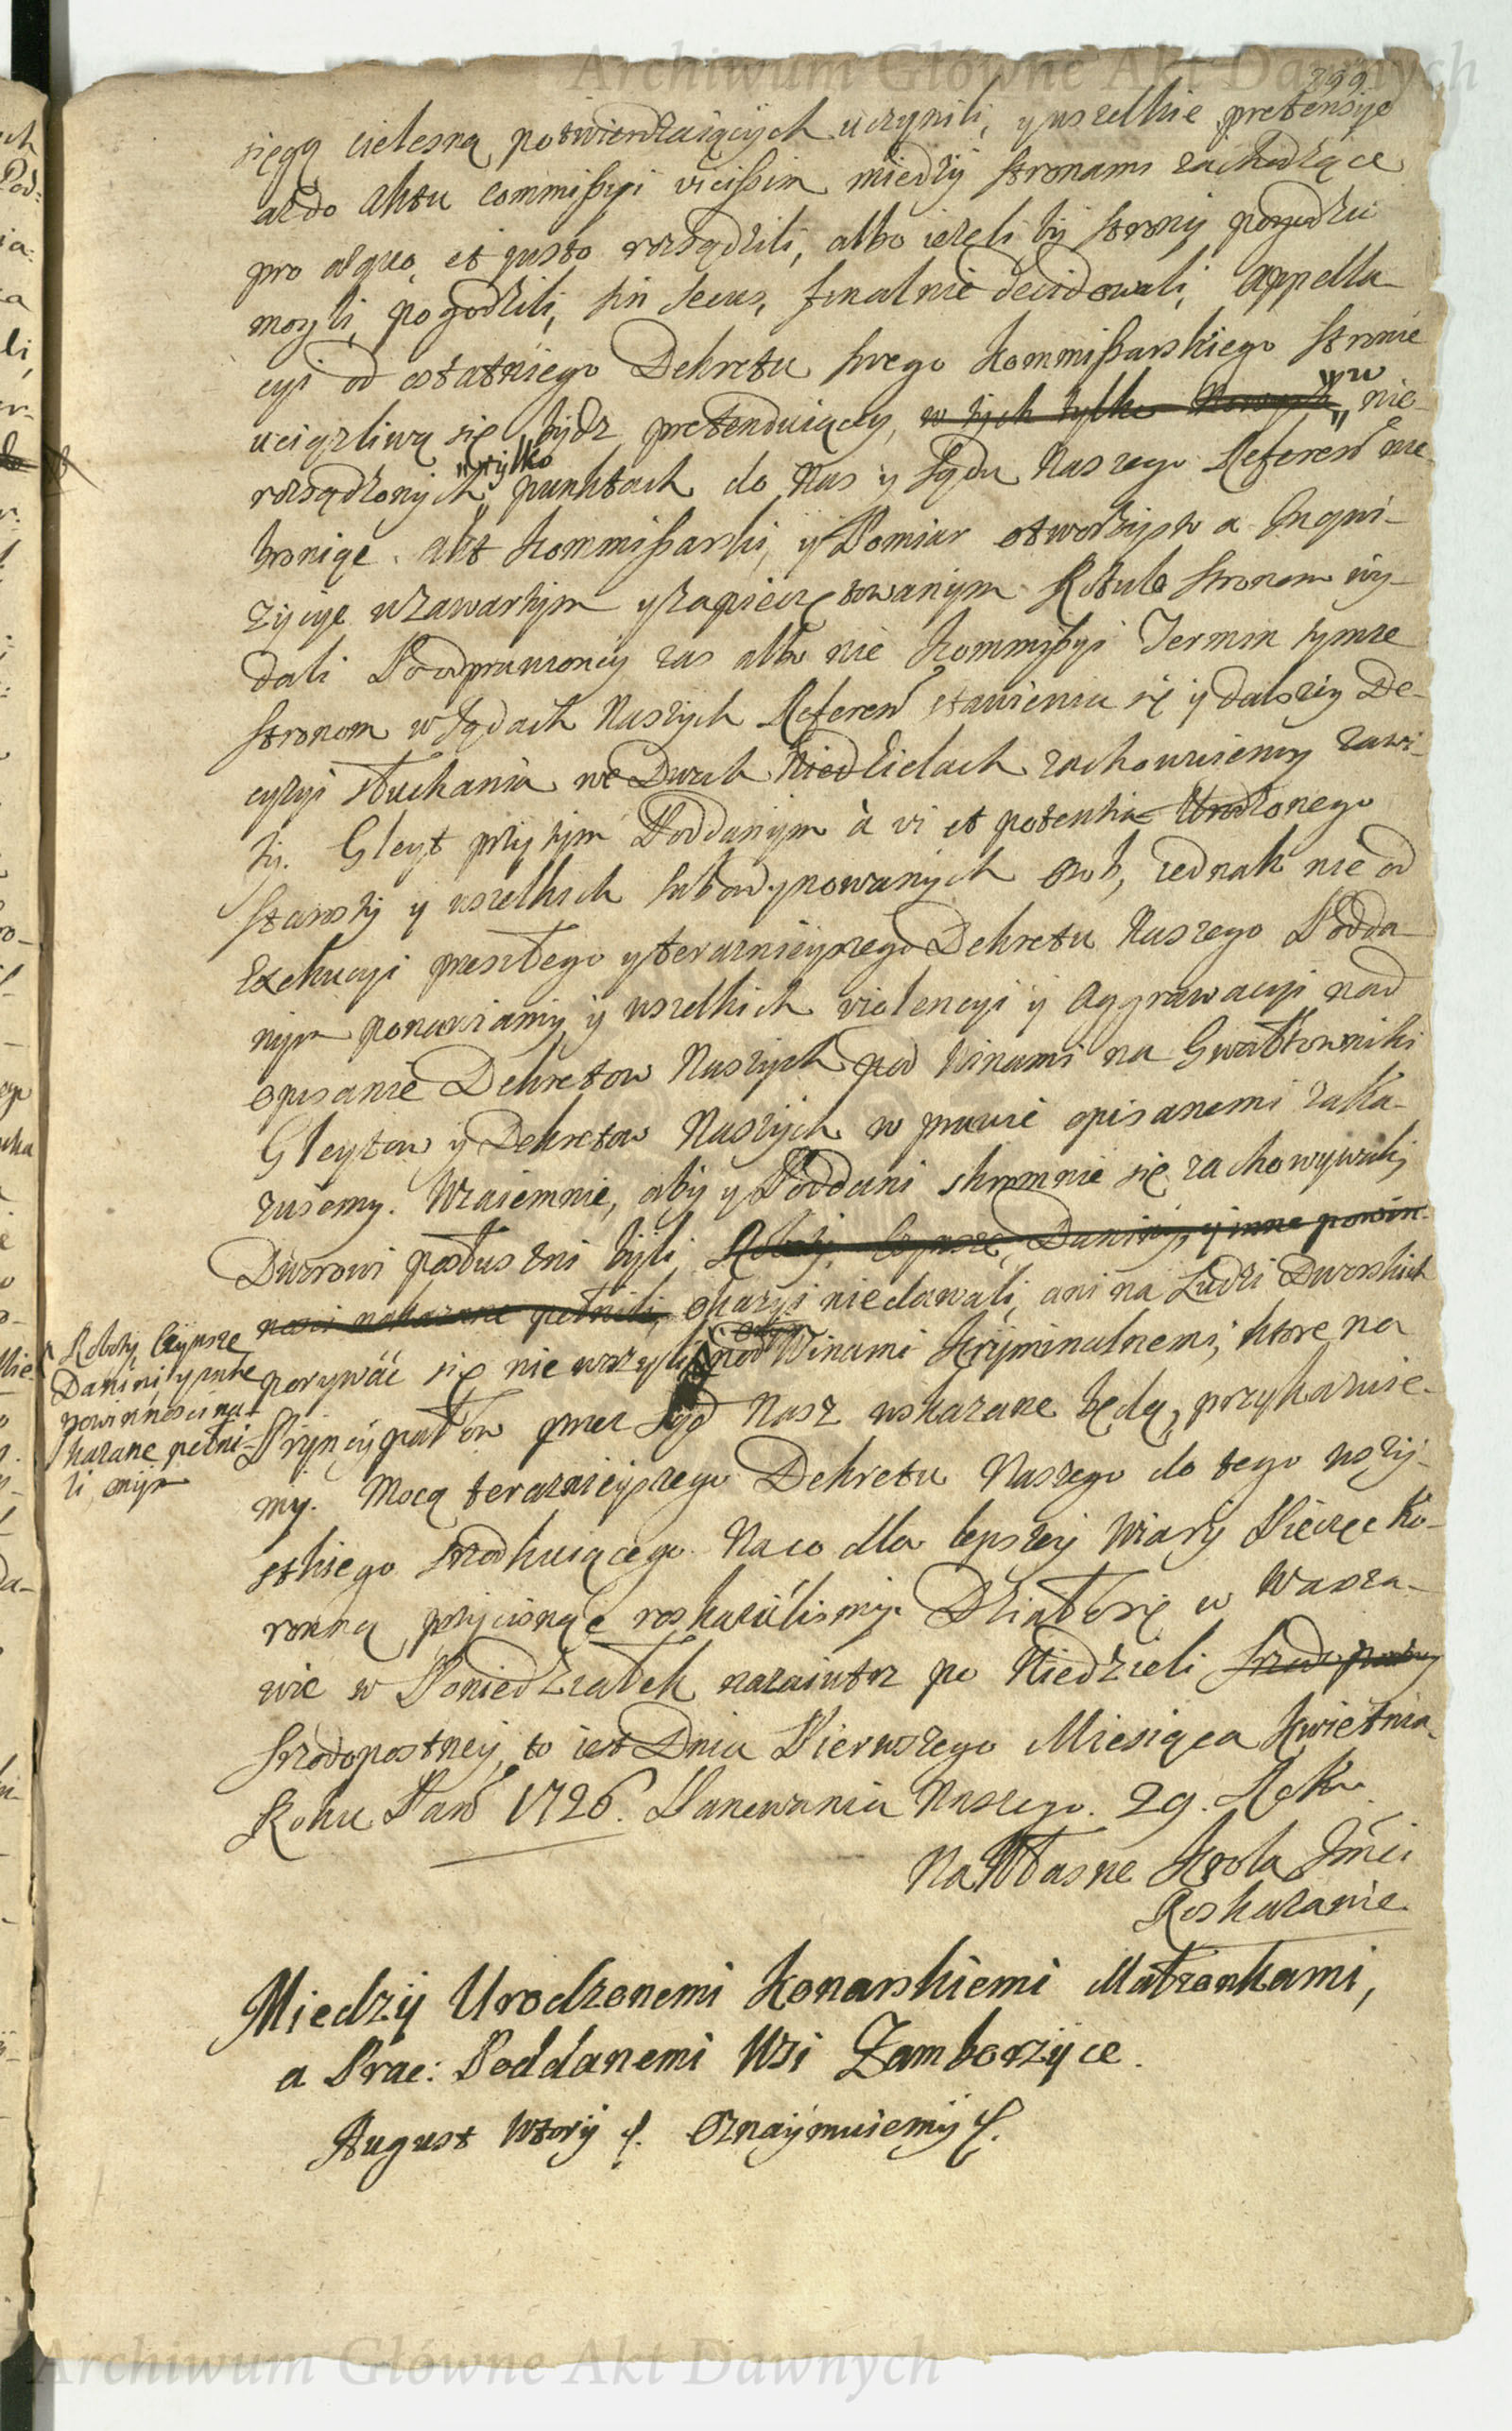 Archiwum Główne Akt Dawnych
299
sięgą cielesną potwierdzaiących uczynili, y wszelkie pretensye
aż do aktu commissyi vicissim między stronami zachodzące
pro aequo et justo rozsądzili, albo ieżeli by strony pogodzić
mogli, pogodzili, sin secus, finalnie decidowali, appella-
cyi od ostatniego Dekretu swego Kommissarskiego stronie
uciążliwą się bydz pretenduiący, w tych tylko nowych w nie-
rozsądzonych tylko punktach do Nas y Sądu Naszego Referen nie
broniąc. Akt Kommissarski, y Pomiar otworzysto a Inqwi-
zycye w zawartym y zapieczętowanym Rotule stronom wy-
dali Poodprawioney zas albo nie Kommissyi Termin tymze
stronom w Sądach Naszych Referen stawienia się y dalszey De-
cyzyi słuchania we Dwuch Niedzielach zachowuiemy zawi-
ty. Gleyt przytym Poddanym à vi et potentia Urodzonego
Starosty y wszelkich subordynowanych osob, iednak nie od
Exekucyi przeszłego y teraznieyszego Dekretu Naszego Podda-
nym ponawiamy y wszelkich violencyi y aggrawacyi nad
opisanie Dekretow Naszych pod winami na Gwałtowniki
Gleytow y Dekretow Naszych w prawie opisanemi zaka-
zuiemy. Wzaiemnie, aby y Poddani skromnie się zachowywali,
Dworowi posłuszni byli, Roboty, Czynsze, Daniny, y inne powin-
nosci nakazane pełnili, okazyi niedawali, ani na Ludzi Dworskich
porywać się nie ważyli, pod Winami Kryminalnemi, ktore na
Pryncypałow przez Sąd Nasz wskazane będą, przykazuie-
my. Mocą teraznieyszego Dekretu Naszego do tego wszy-
stkiego srodkuiącego. Na co dla lepszey Wiary Pieczęć Ko-
ronną przycisnąć roskazalismy. Działo się w Warsza-
wie w Poniedziałek nazaiutrz po Niedzieli Srzodopostney
Srzodopostney, to iest Dnia Pierwszego Miesiąca Kwietnia
Roku Pań 1726. Panowania Naszego 29. Roku
Roboty Czynsze
Daniny y inne
powinnosci na-
kazane pełni-
li, onym
Na Własne Krola Jmci
Roskazanie.
Miedzy Urodzonemi Konarskiemi Małzonkami,
a Prac: Poddanemi Wsi Zamborzyce.
August Wtory &. Oznaymuiemy &.
Archiwum Główne Akt Dawnych